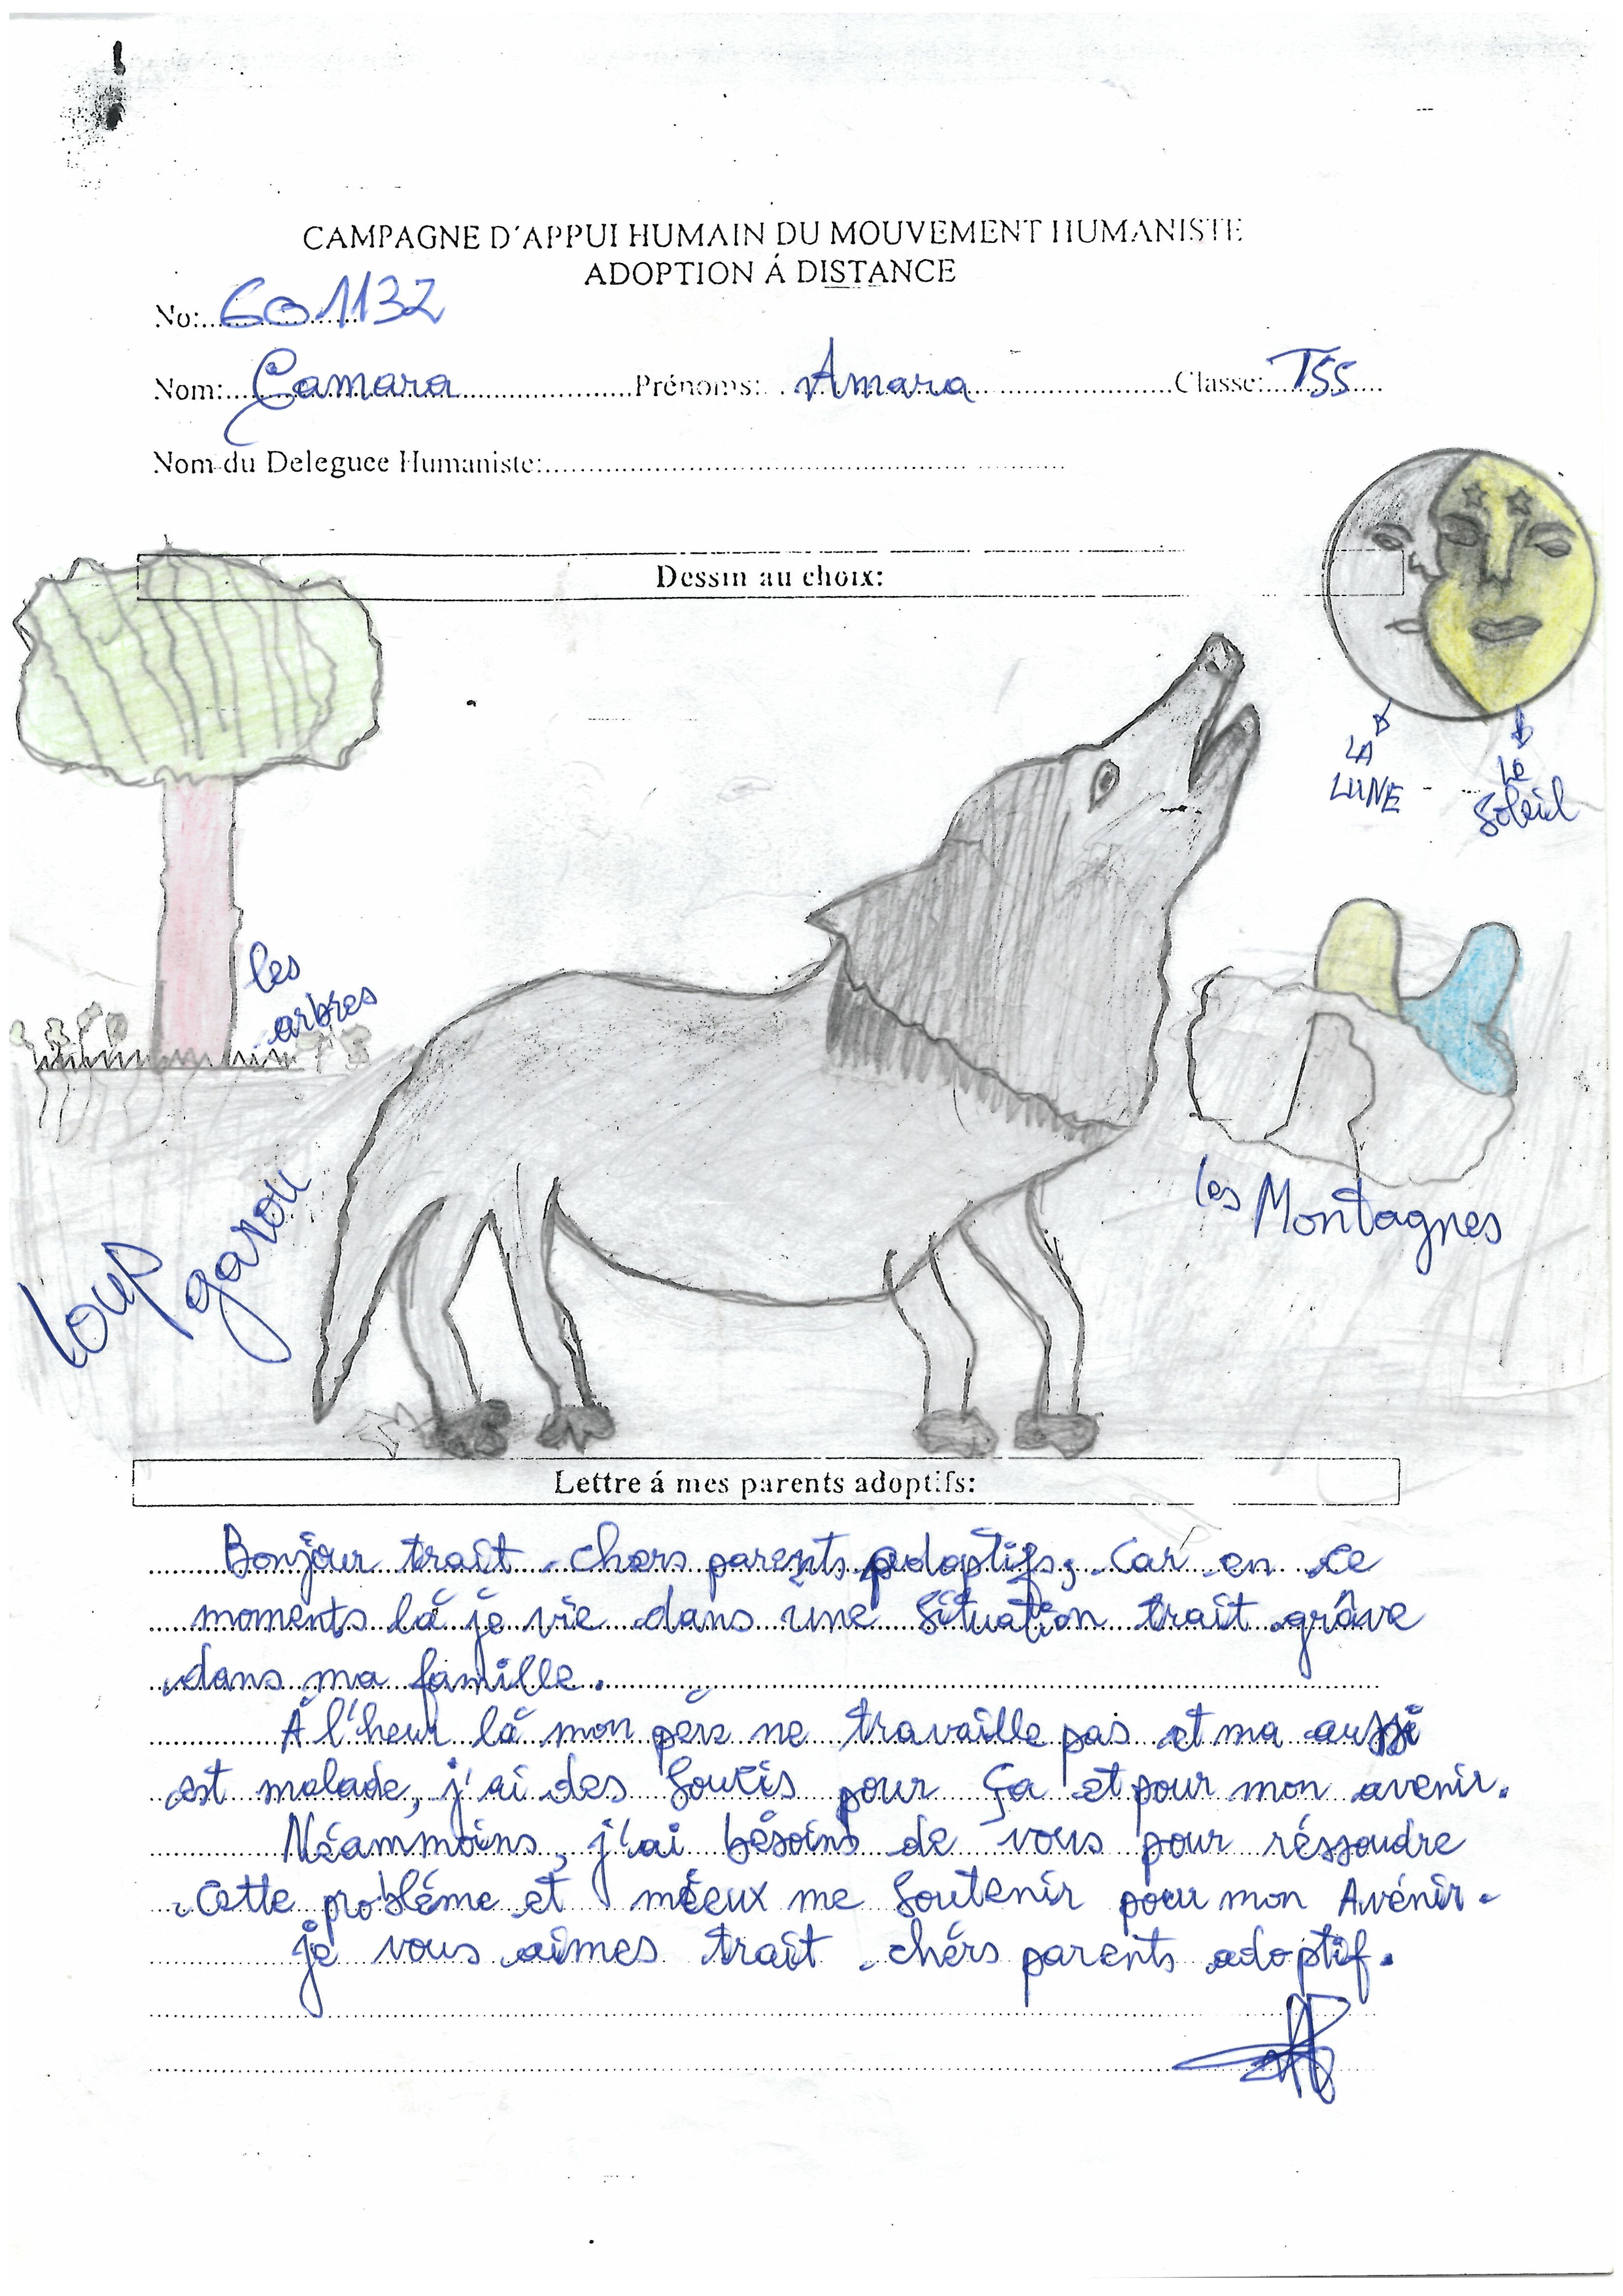 CAMPAGNE D'APPUI HUMAIN DU MOUVEMENT HUMANISTE
ADOPTION Á DISTANCE
No: 601132
Nom: Camara Prénoms: Amara Classe: TSS
Nom du Deleguee Humaniste:
Dessin au choix:
LA
LUNE
Le
Soleil
les
arbres
les Montagnes
Loup
garou
Lettre á mes parents adoptifs:
Bonjour trait chers parents adoptifs, Car en ce
moments là je vie dans une Situation trait grâve
dans ma famille.
À l'heur là mon père ne travaille pas et ma aussi
est malade, j'ai des Soucis pour ça et pour mon avenir.
Néammoins, j'ai bésoins de vous pour réssoudre
Cette probléme et mieux me Soutenir pour mon Avénir.
je vous aimes trait chérs parents adoptif.